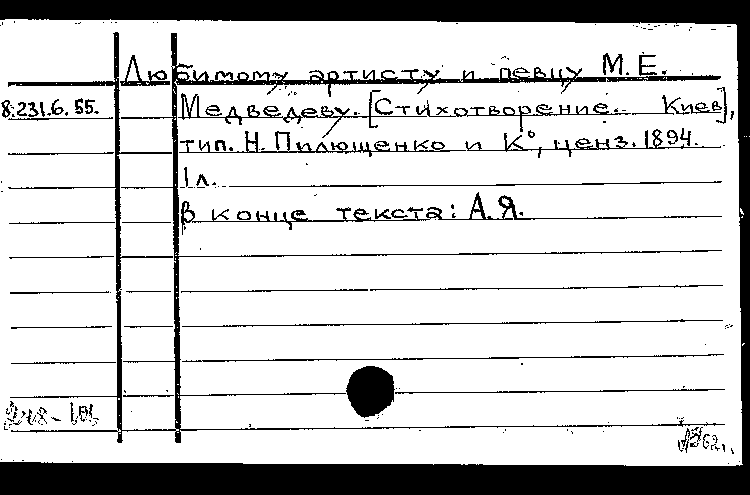 Любимому артисту и певцу М.Е.
8.231.6.55. Медведеву. [Стихотворение. Киев],
тип. Н. Пилющенко и К°, ценз. 1894.
1 л.
В конце текста: А.Я.